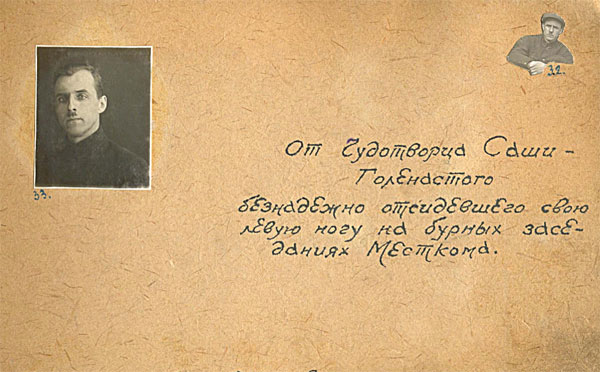 32.
33.
От Чудотворца Саши -
Голенастого
безнадежно отсидевшего свою
левую ногу на бурных засе-
даниях Месткома.